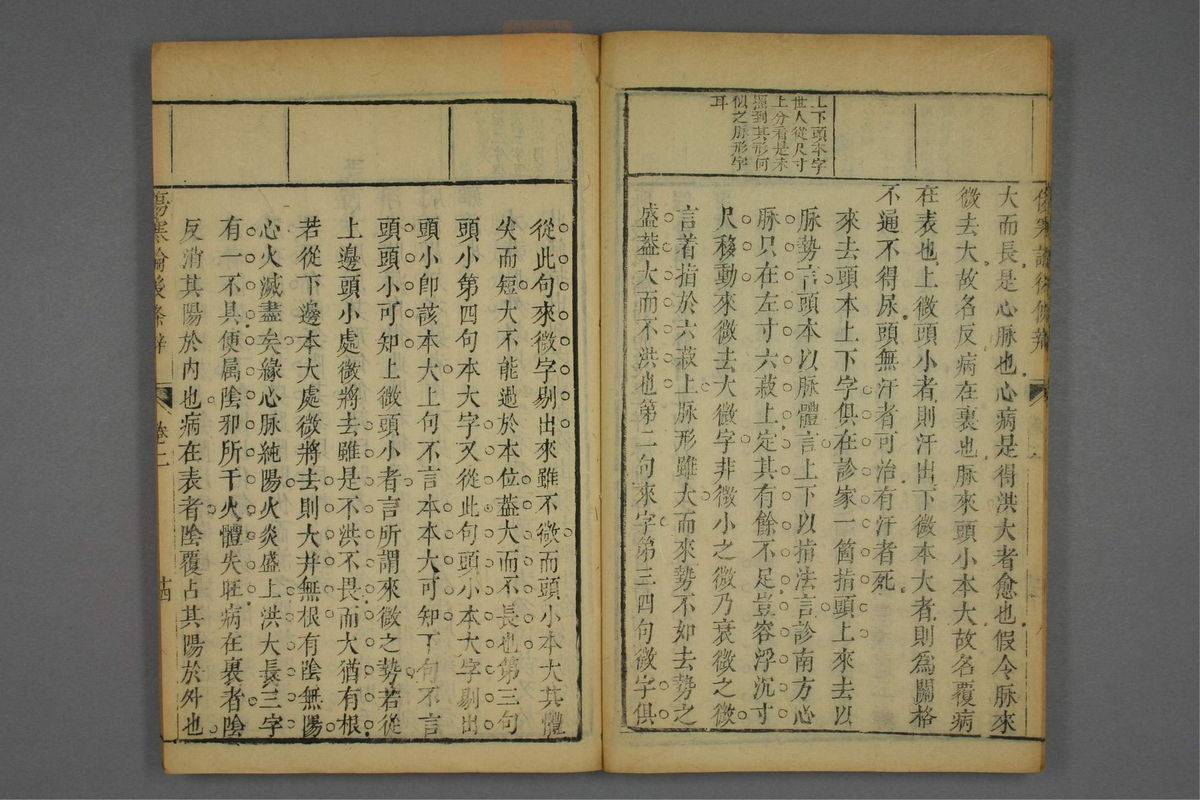 上下頭本字
世人從尺寸
上分看是未
照到其形何
似之脉形字
耳
大而長是心脉也心病是得洪大者愈也假令脉來
微去大故名反病在裏也脉來頭小本大故名覆病
在表也上微頭小者則汗出下微本大者則為關格
不通不得尿頭無汗者可治有汗者死
來去頭本上下字俱在診家一箇指頭上來去以
脉勢言頭本以脉體言上下以指法言診南方心
脉只在左寸六菽上定其有餘不足豈容浮沉寸
尺移動來微去大微字非微小之微乃衰微之微
言着指於六菽上脉形雖大而來勢不如去勢之
盛葢大而不洪也第二句來字第三四句微字俱
從此句來微字剔出來雖不微而頭小本大其體
尖而短大不能過於本位葢大而不長也第三句
頭小第四句本大字又從此句頭小本大字剔出
頭小卽該本大上句不言本本大可知下句不言
頭頭小可知上微頭小者言所謂來微之勢若從
上邊頭小處微將去雖是不洪不畏而大猶有根
若從下邊本大處微將去則大井無根有陰無陽
心火滅盡矣緣心脉純陽火炎盛上洪大長三字
有一不具便属陰邪所干火體失旺病在裏者陰
反消其陽於内也病在表者陰覆占其陽於外也
傷寒論後條辨
卷二
十四